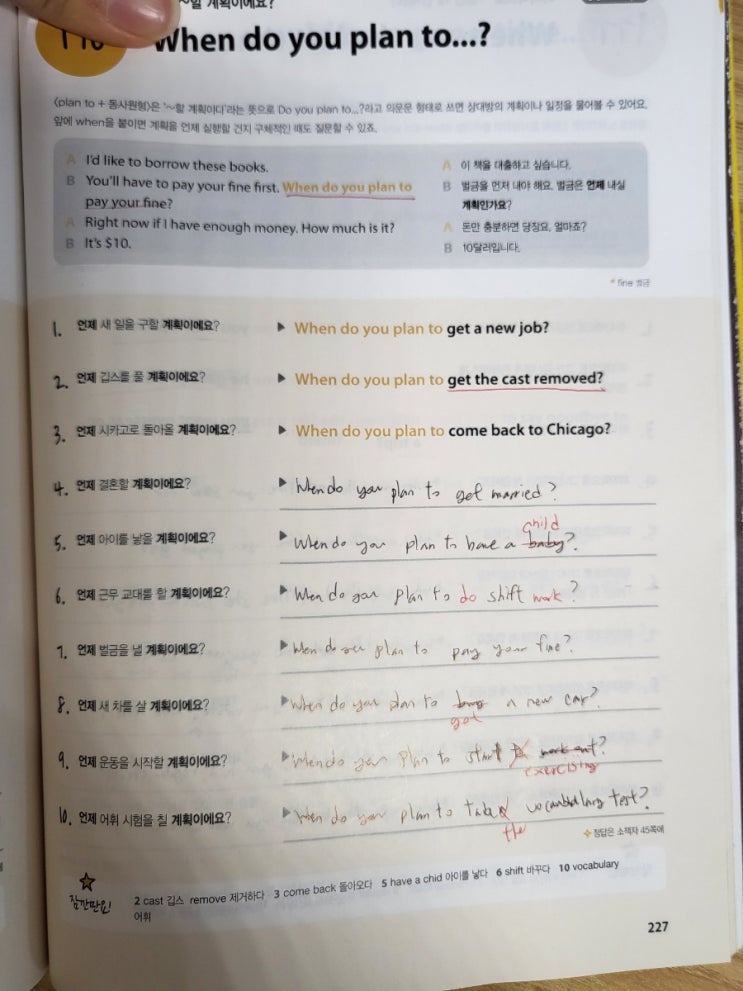 할 계획이에요?
When do you plan to...?
〈plan to + 동사원형〉은 '~할 계획이다'라는 뜻으로 Do you plan to...?라고 의문문 형태로 쓰면 상대방의 계획이나 일정을 물어볼 수 있어요.
앞에 when을 붙이면 계획을 언제 실행할 건지 구체적인 때도 질문할 수 있죠.
A I'd like to borrow these books.
B You'll have to pay your fine first. When do you plan to
pay your fine?
A Right now if I have enough money. How much is it?
B It's $10.
A 이 책을 대출하고 싶습니다.
B 벌금을 먼저 내야 해요. 벌금은 언제 내실
계획인가요?
A 돈만 충분하면 당장요. 얼마죠?
B 10달러입니다.
* fine 벌금
1. 언제 새 일을 구할 계획이에요? ▶ When do you plan to get a new job?
2. 언제 깁스를 풀 계획이에요? ▶ When do you plan to get the cast removed?
3. 언제 시카고로 돌아올 계획이에요? ▶ When do you plan to come back to Chicago?
4. 언제 결혼할 계획이에요? ▶ When do you plan to get married?
child
5. 언제 아이를 낳을 계획이에요? ▶ When do you plan to have a baby?
6. 언제 근무 교대를 할 계획이에요? ▶ When do you plan to do shift work?
7. 언제 벌금을 낼 계획이에요? ▶ When do you plan to pay your fine?
8. 언제 새 차를 살 계획이에요? ▶ When do you plan to buy a new car?
get
9. 언제 운동을 시작할 계획이에요? ▶ When do you plan to start to work out?
exercising
10. 언제 어휘 시험을 칠 계획이에요? ▶ When do you plan to take vocabulary test?
the
정답은 소책자 45쪽에
잠깐만요!
2 cast 깁스 remove 제거하다 3 come back 돌아오다 5 have a chid 아이를 낳다 6 shift 바꾸다 10 vocabulary
어휘
227